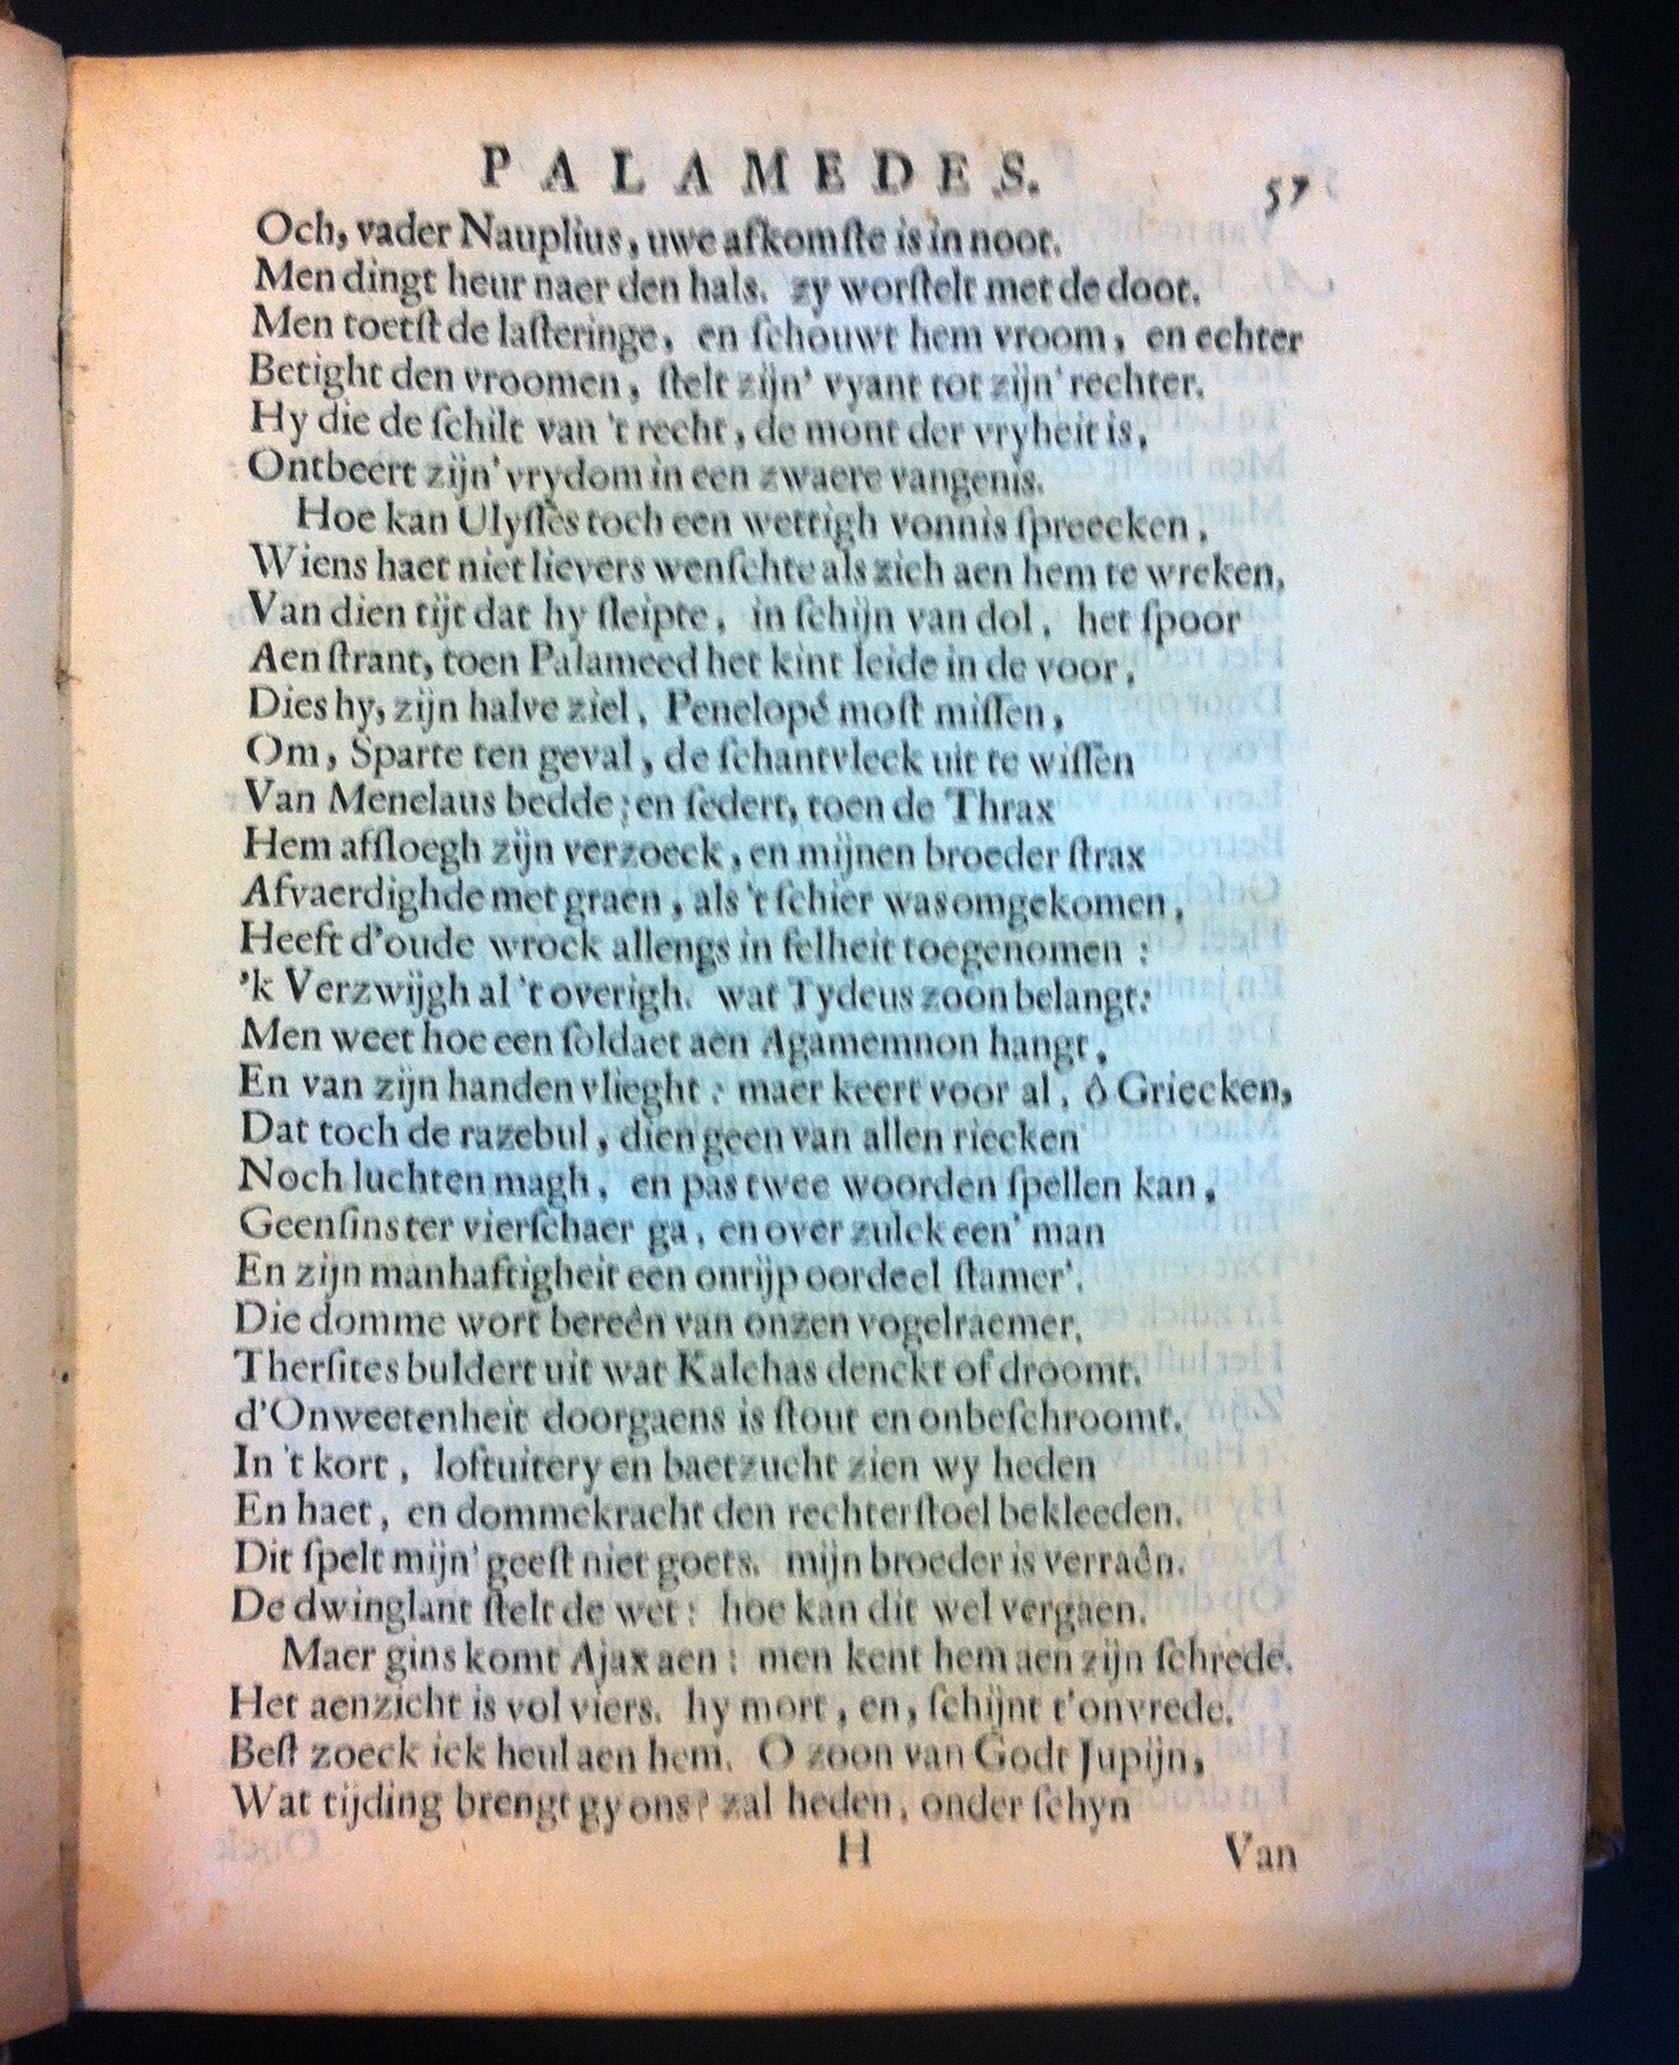 PALAMEDES. 57
Och, vader Nauplius, uwe afkomſte is in noot.
Men dingt heur naer den hals. zy worſtelt met de doot.
Men toetſt de laſteringe, en ſchouwt hem vroom, en echter
Betight den vroomen, ſtelt zijn' vyant tot zijn' rechter.
Hy die de ſchilt van 't recht, de mont der vryheit is,
Ontbeert zijn' vrydom in een zwaere vangenis.
Hoe kan Ulyſſes toch een wettigh vonnis ſpreecken,
Wiens haet niet lievers wenſchte als zich aen hem te wreken,
Van dien tijt dat hy ſleipte, in ſchijn van dol, het ſpoor
Aen ſtrant, toen Palameed het kint leide in de voor,
Dies hy, zijn halve ziel, Penelopé moſt miſſen,
Om, Sparte ten geval, de ſchantvleck uit te wiſſen
Van Menelaus bedde; en ſedert, toen de Thrax
Hem afſloegh zijn verzoeck, en mijnen broeder ſtrax
Afvaerdighde met graen, als 't ſchier was omgekomen,
Heeft d'oude wrock allengs in felheit toegenomen:
'k Verzwijgh al 't overigh. wat Tydeus zoon belangt:
Men weet hoe een ſoldaet aen Agamemnon hangt,
En van zijn handen vlieght: maer keert voor al, ô Griecken,
Dat toch de razebul, dien geen van allen riecken
Noch luchten magh, en pas twee woorden ſpellen kan,
Geenſins ter vierſchaer ga, en over zulck een' man
En zijn manhaftigheit een onrijp oordeel ſtamer'.
Die domme wort bereên van onzen vogelraemer.
Therſites buldert uit wat Kalchas denckt of droomt.
d'Onweetenheit doorgaens is ſtout en onbeſchroomt.
In 't kort, loftuitery en baetzucht zien wy heden
En haet, en dommekracht den rechterſtoel bekleeden.
Dit ſpelt mijn' geeſt niet goets. mijn broeder is verraên.
De dwinglant ſtelt de wet: hoe kan dit wel vergaen.
Maer gins komt Ajax aen: men kent hem aen zijn ſchrede.
Het aenzicht is vol viers. hy mort, en, ſchijnt t'onvrede.
Beſt zoeck ick heul aen hem. O zoon van Godt Jupijn,
Wat tijding brengt gy ons? zal heden, onder ſchyn
H Van